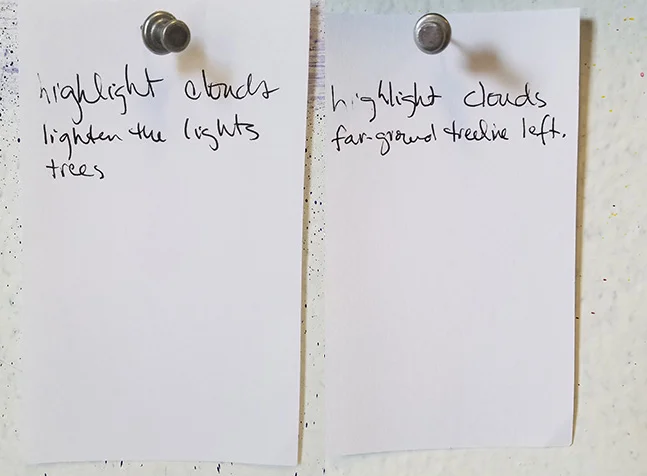 highlight clouds
lighten the lights
trees
highlight clouds
far-ground treeline left.